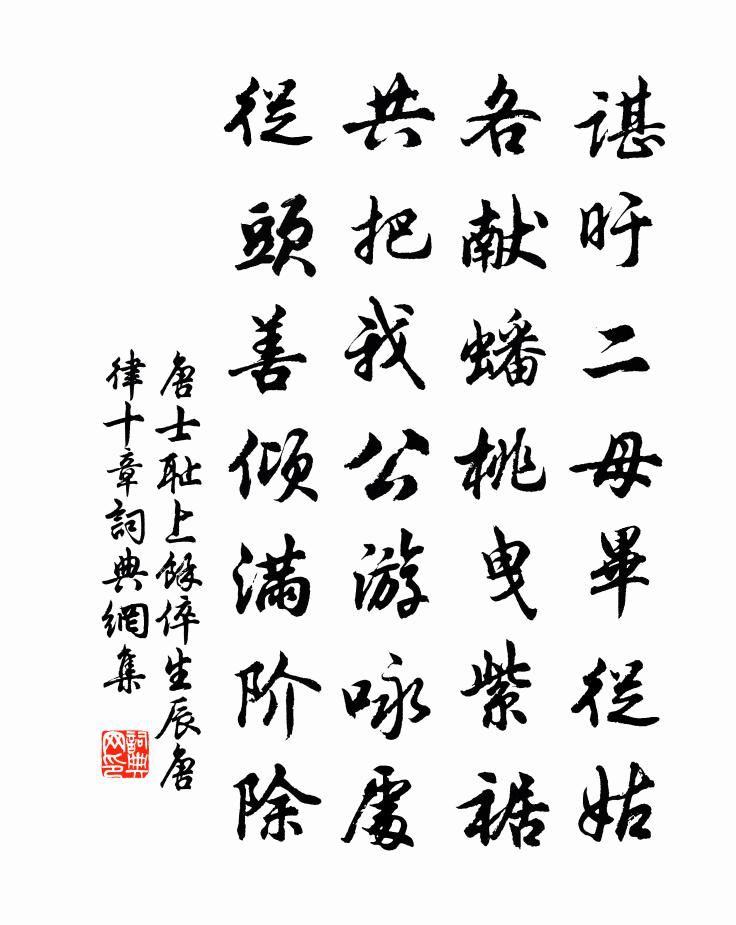 諶盱二母畢從姑
各献蟠桃曳紫裾
共把我公游咏處
從頭善傾满阶除
唐士耻上餘倅生辰唐
律十章詞典網集
詞典网印